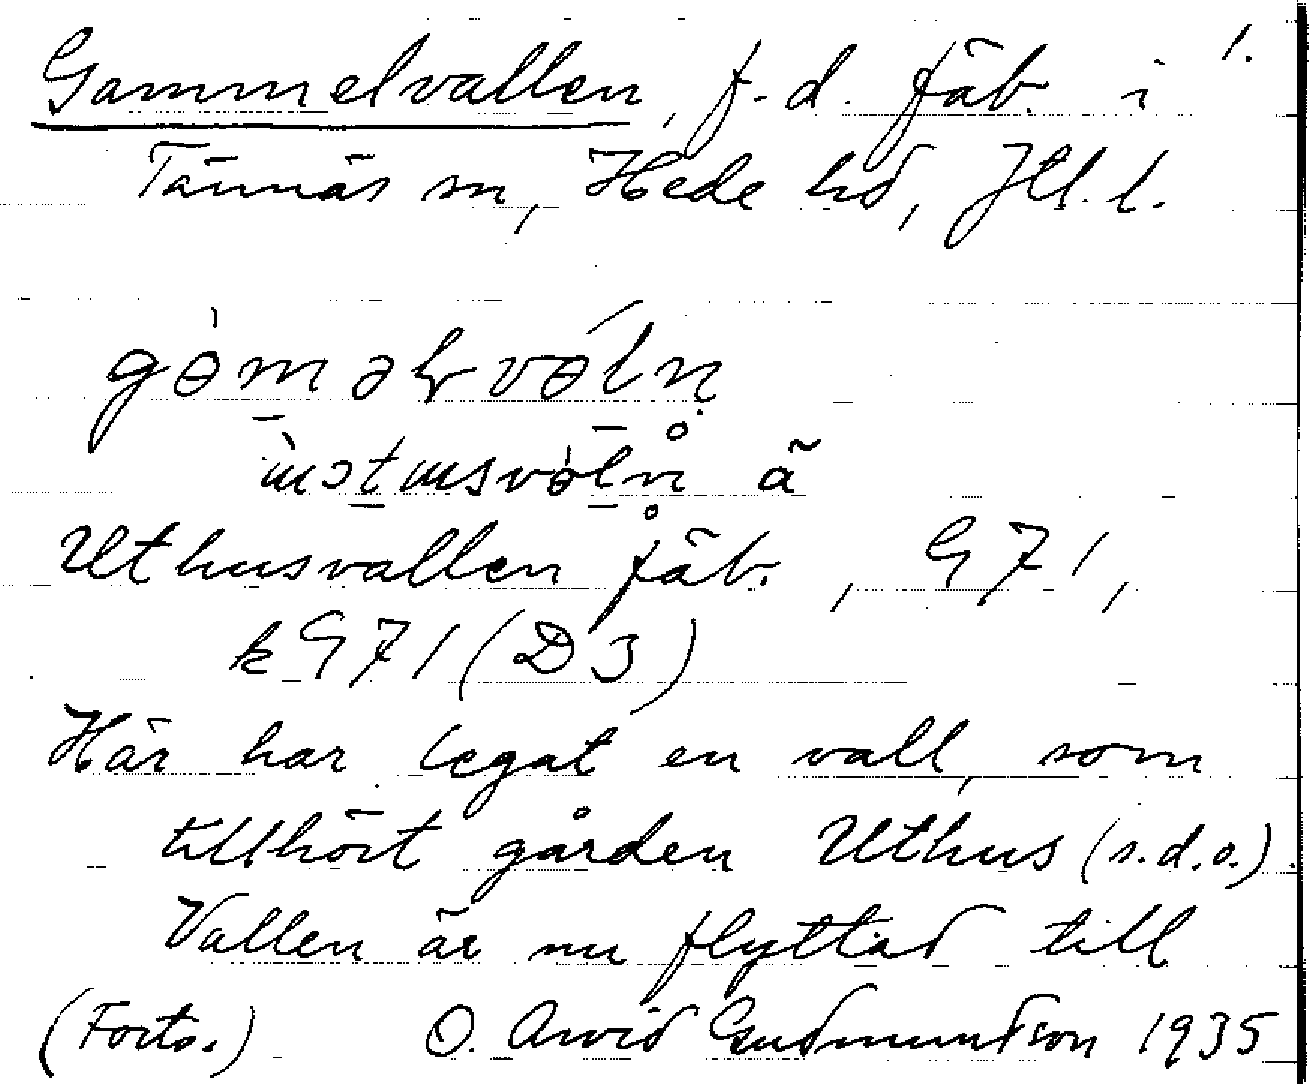 Gammelvallen, f. d. fäb. i 1.
Tännäs sn, Hede hd, Jtl. l.
Uthusvallen fäb., G71,
kG71(D3)
Här har legat en vall, som
tillhört gården Uthus (s.d.o.).
Vallen är nu flyttad till
(Forts.) O. Arvid Gudmundson 1935